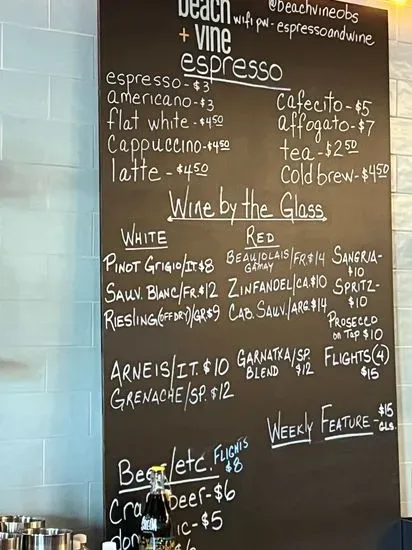 beach
+ vine
@beachvineobs
wifi pw - espressoandwine
espresso
espresso - $3
americano - $3
flat white - $4.50
Cappuccino - $4.50
latte - $4.50
Cafecito - $5
affogato - $7
tea - $2.50
Cold brew - $4.50
Wine by the Glass
WHITE
PINOT GRIGIO/IT $8
SAUV. BLANC/FR. $12
RIESLING (OFF DRY)/GR $9
ARNEIS/IT. $10
GRENACHE/SP. $12
RED
BEAUJOLAIS/FR. $14
GAMAY
ZINFANDEL/CA. $10
CAB. SAUV./ARG. $14
GARNATXA/SP.
BLEND $12
SANGRIA -
$10
SPRITZ -
$10
PROSECCO
on Tap $10
FLIGHTS (4)
$15
WEEKLY FEATURE - $15
GLS.
/etc. FLIGHTS
$8
beer - $6
- $5